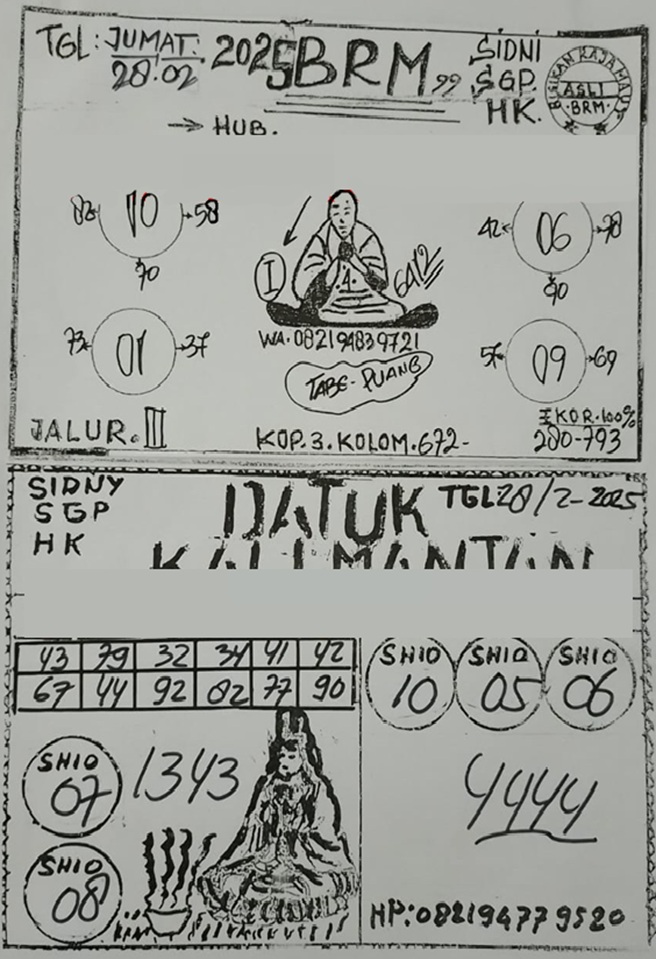 TGL: JUMAT. 2025 BRM 99 SIDNI
28.02 SGP.
HK.
BISIKAN RAJA MAUT
ASLI
BRM
→ HUB.
82 10 58
90
I
4
6412
42 06 78
90
73 01 37
WA. 082194839721
TABE-PUANG
57 09 69
JALUR. III
KOP. 3. KOLOM. 672-
EKOR. 100%
280-793
SIDNY
SGP
HK
DATUK
KALIMANTAN
TGL 28/2-2025
43 79 32 34 41 42
67 44 92 82 77 90
SHIO 10
SHIO 05
SHIO 06
SHIO 07
1343
4444
SHIO 08
HP: 082194779520